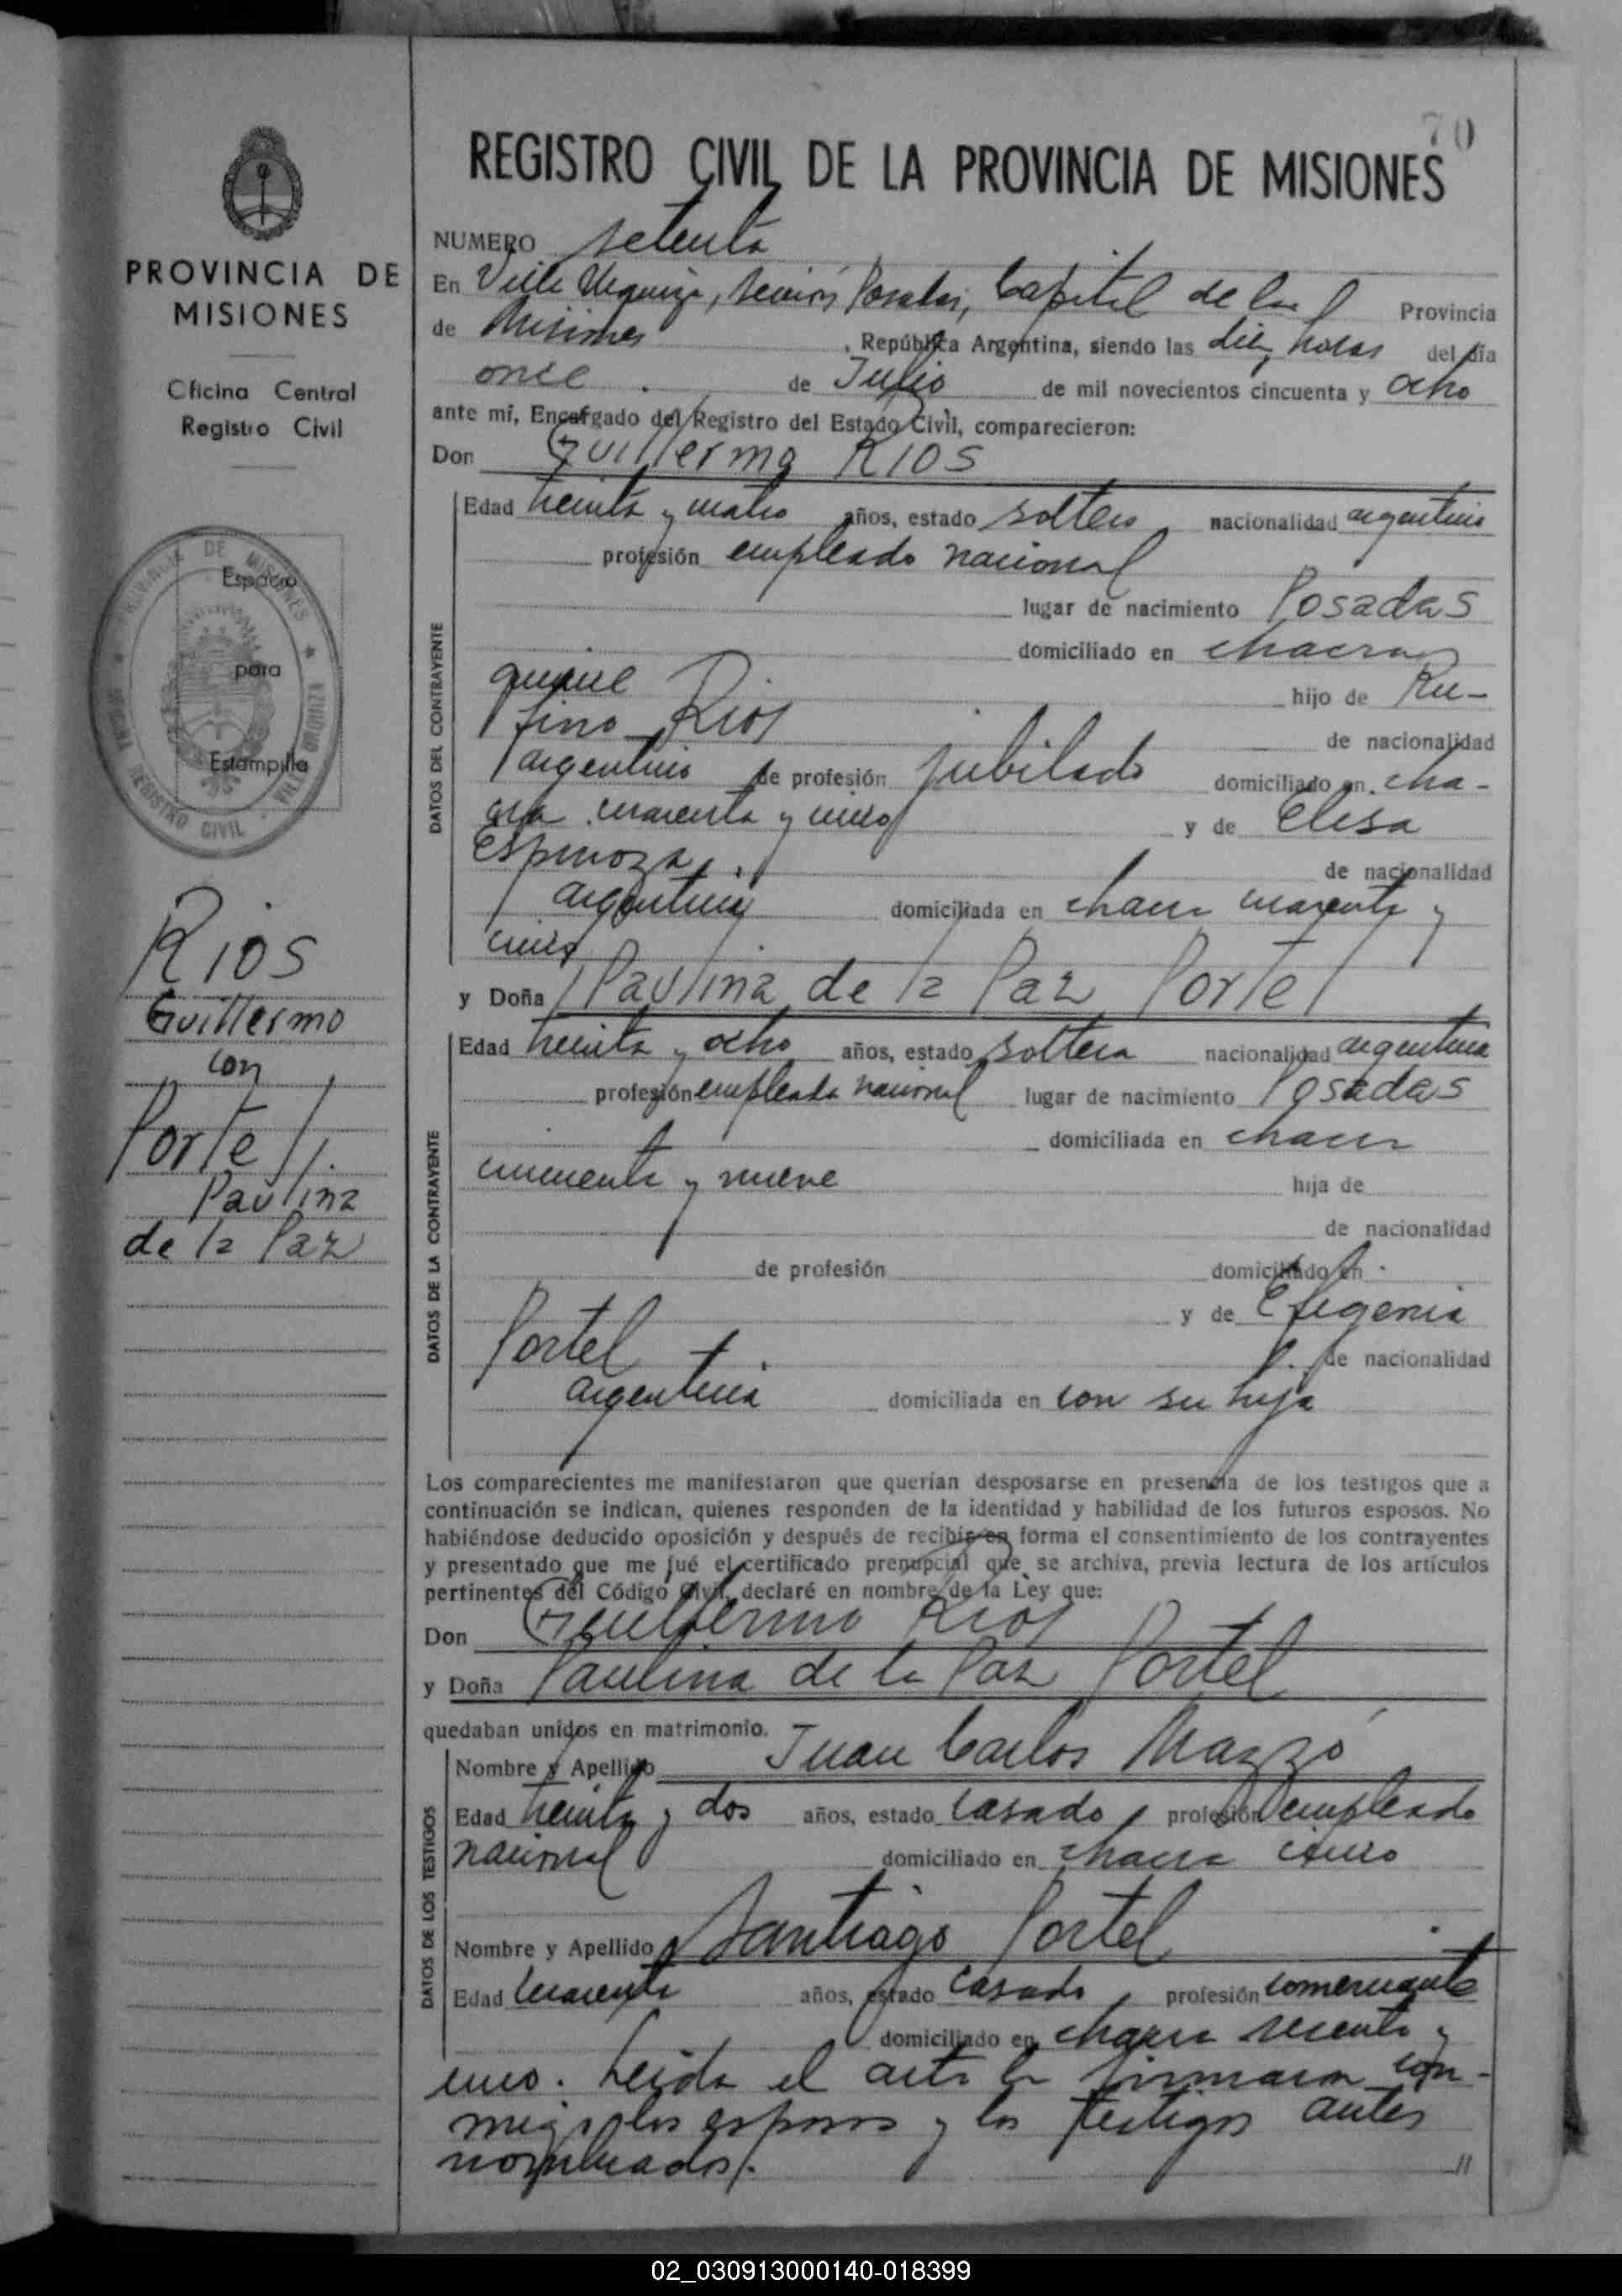 70
REGISTRO CIVIL DE LA PROVINCIA DE MISIONES
PROVINCIA DE
MISIONES
Oficina Central
Registro Civil
PROVINCIA DE MISIONES
REGISTRO CIVIL
Espacio
para
Estampilla
RIOS
Guillermo
con
Portel.
Paulina
de la Paz
NUMERO setenta
En Villa Urquiza, sección Posadas, Capital de la Provincia
de Misiones, República Argentina, siendo las diez horas del día
once de Julio de mil novecientos cincuenta y ocho
ante mí, Encargado del Registro del Estado Civil, comparecieron:
Don Guillermo RIOS
DATOS DEL CONTRAYENTE
Edad treinta y cuatro años, estado soltero nacionalidad argentino
profesión empleado nacional
lugar de nacimiento Posadas
domiciliado en chacra
quince hijo de Ru-
fino Rios de nacionalidad
argentino de profesión jubilado domiciliado en cha-
cra cuarenta y cinco y de Elisa
Espinoza, de nacionalidad
argentina domiciliada en chacra cuarenta y
cinco
y Doña Paulina de la Paz Portel
DATOS DE LA CONTRAYENTE
Edad treinta y ocho años, estado soltera nacionalidad argentina
profesión empleada nacional lugar de nacimiento Posadas
domiciliada en chacra
cincuenta y nueve hija de
de nacionalidad
de profesión domiciliado en
y de Efigenia
Portel de nacionalidad
argentina domiciliada en con su hija
Los comparecientes me manifestaron que querían desposarse en presencia de los testigos que a
continuación se indican, quienes responden de la identidad y habilidad de los futuros esposos. No
habiéndose deducido oposición y después de recibir en forma el consentimiento de los contrayentes
y presentado que me fué el certificado prenupcial que se archiva, previa lectura de los artículos
pertinentes del Código Civil, declaré en nombre de la Ley que:
Don Guillermo Rios
y Doña Paulina de la Paz Portel
quedaban unidos en matrimonio.
DATOS DE LOS TESTIGOS
Nombre y Apellido Juan Carlos Mazzó
Edad treinta y dos años, estado casado profesión empleado
nacional domiciliado en chacra cinco
Nombre y Apellido Santiago Portel
Edad cuarenta años, estado casado profesión comerciante
domiciliado en chacra sesenta y
uno. Leida el acta la firmaron con-
migo los esposos y los testigos antes
nombrados.
02_030913000140-018399